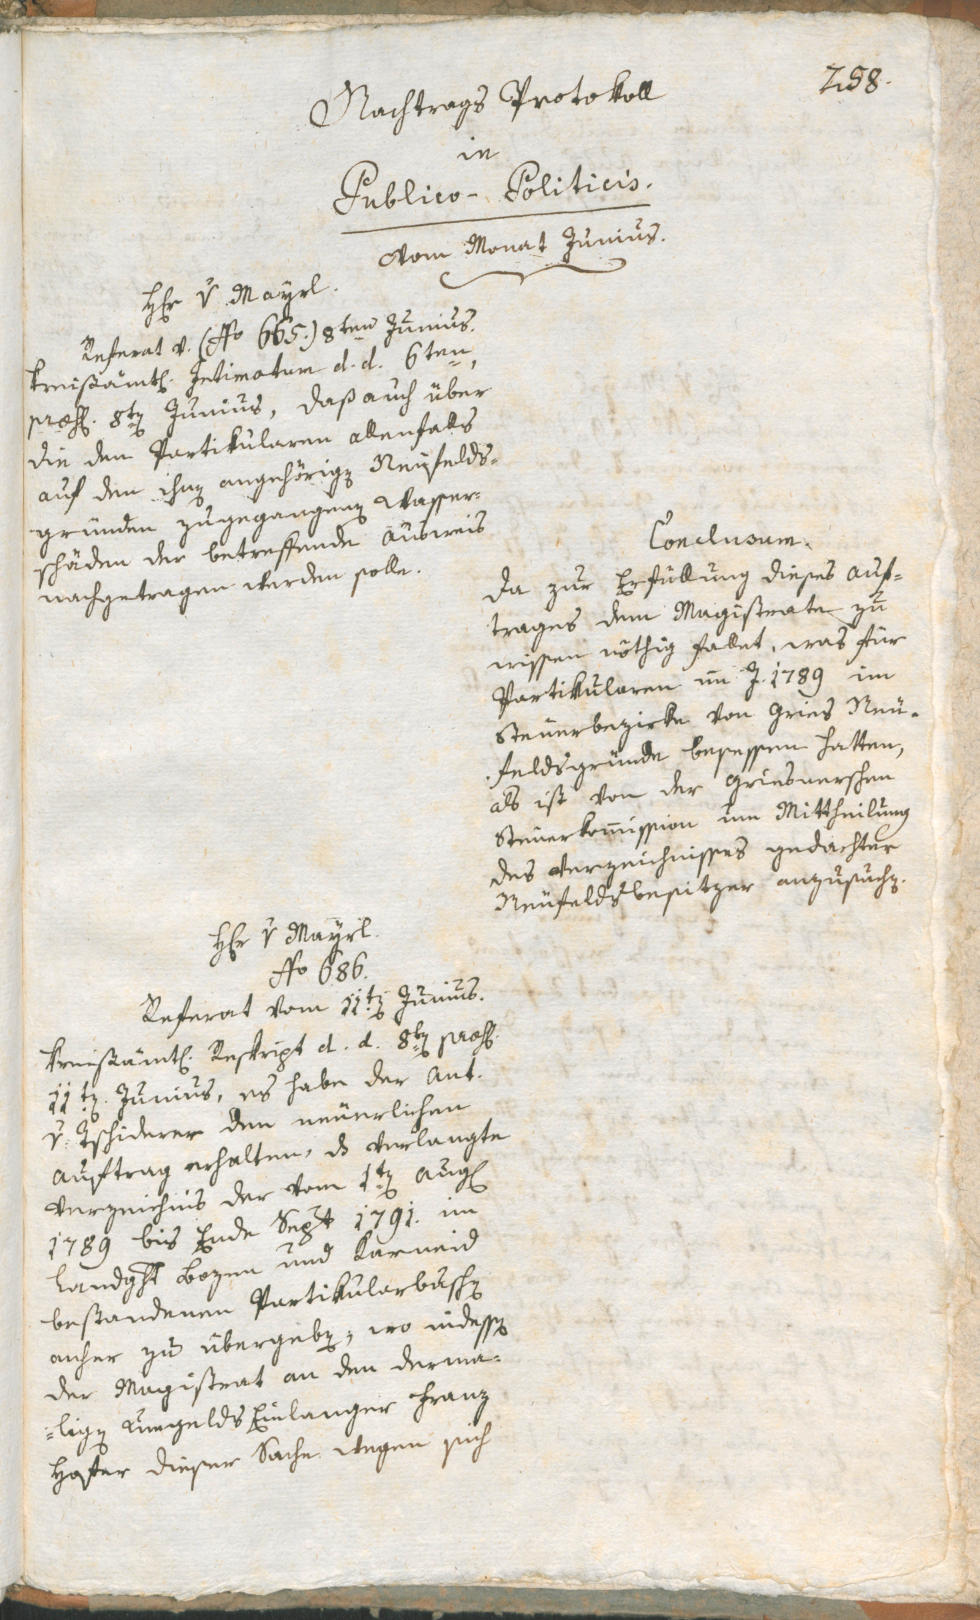 258.
Nachtrags Protokoll
in
Publico-Politicis.
vom Monat Junius.
Hr v. Mayrl.
Referat v. (No 665.) 8ten Junius.
kreisämtl. Intimatum d. d. 6ten,
præs. 8ten Junius, daß auch über
die den Partikularen allenfalls
auf den ihnen angehörigen Neufelds-
gründen zugegangenen Wasser-
schäden der betreffende Ausweis
nachgetragen werden solle.
Conclusum.
Da zur Erfüllung dieses Auf-
trages dem Magistrate zu
wissen nöthig fallet, was für
Partikularen im J. 1789 im
Steuerbezirke von Gries Neu-
feldsgründe besessen hatten,
als ist von der griesnerschen
Steuerkommission um Mittheilung
des Verzeichnisses gedachter
Neufeldsbesitzer anzusuchen.
Hr v. Mayrl.
No 686.
Referat vom 11ten Junius.
kreisämtl. Reskript d. d. 8ten præs.
11ten Junius, es habe der Ant.
v. Tschiderer den neuerlichen
Auftrag erhalten, das verlangte
Verzeichnis der vom 1ten Aug.
1789 bis Ende Sept 1791. im
Landght Bozen und Karneid
bestandenen Partikularbuschen
anher zu übergeben, wo indessen
der Magistrat an den derma-
-ligen Umgelds Einlanger Franz
Hofer dieser Sache wegen sich